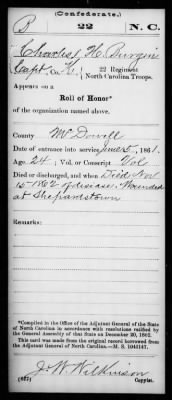 (Confederate.)
B 22 N. C.
Charles H. Burgin
Capt, Co. K, 22 Regiment
North Carolina Troops.
Appears on a
Roll of Honor*
of the organization named above.
County McDowell
Date of entrance into service June 5, 1861.
Age 24; Vol. or Conscript Vol
Died or discharged, and when Died Nov
15-1862 of disease. Wounded
at Shepardstown
Remarks:
*Compiled in the Office of the Adjutant General of the State
of North Carolina in accordance with resolutions ratified by
the General Assembly of that State on December 20, 1862.
This card was made from the original record borrowed from
the Adjutant General of North Carolina—M. S. 1043147.
(627) J. W. Wilkinson
Copyist.